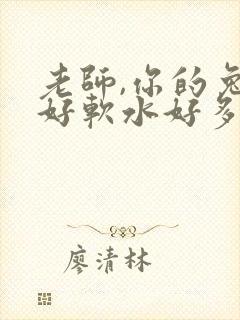 老師,你的兔
好軟水好多
廖清林